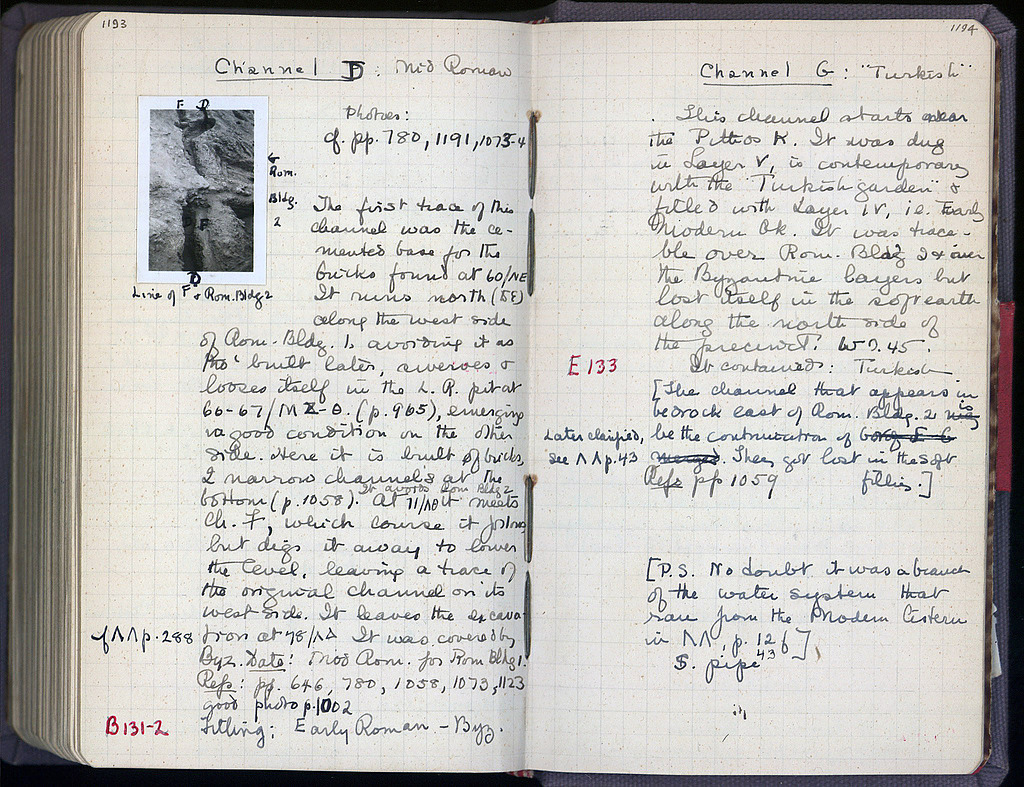 1193
Channel D: Mid Roman
Photos:
cf. pp. 780, 1191, 1073-4
F D
G
Rom.
Bldg.
2
F
D
Line of F & Rom. Bldg 2
The first trace of this
channel was the ce-
mented base for the
bricks found at 60/NE
It runs north
along the west side
of Rom. Bldg. 1, avoiding it as
tho' built later, swerves &
looses itself in the L.R. pit at
66-67/ (p. 965), emerging
in good condition on the other
side. Here it is built of bricks,
2 narrow channels at the
bottom (p. 1058). It avoids Rom Bldg 2
At 71/ΛΘ it meets
Ch. F, which course it follows
but digs it away to lower
the level, leaving a trace of
the original channel on its
west side. It leaves the excava-
cf ΛΛ p. 288
tion at 78/ΛΔ It was covered by
Byz. Date: Mid Rom. for Rom Bldg 1.
Refs: pp. 646, 780, 1058, 1073, 1123
good photo p. 1002
B131-2
Filling: Early Roman - Byz.
1194
Channel G: "Turkish"
This channel starts near
the Pithos K. It was dug
in Layer V, is contemporary
with the "Turkish garden" &
filled with Layer IV, i.e. Early
Modern Ok. It was tracea-
ble over Rom. Bldg 2 & over
the Byzantine layers but
lost itself in the soft earth
along the north side of
the precinct. W 7.45.
E 133
It contained: Turkish
[The channel that appears in
bedrock east of Rom. Bldg. 2 is
Later clarified,
see ΛΛ p. 43
be the continuation of
They got lost in the soft
filling.]
Refs pp 1059
[P.S. No doubt it was a branch
of the water system that
ran from the Modern Cistern
in ΛΛ, p. 126]
S. pipe 43